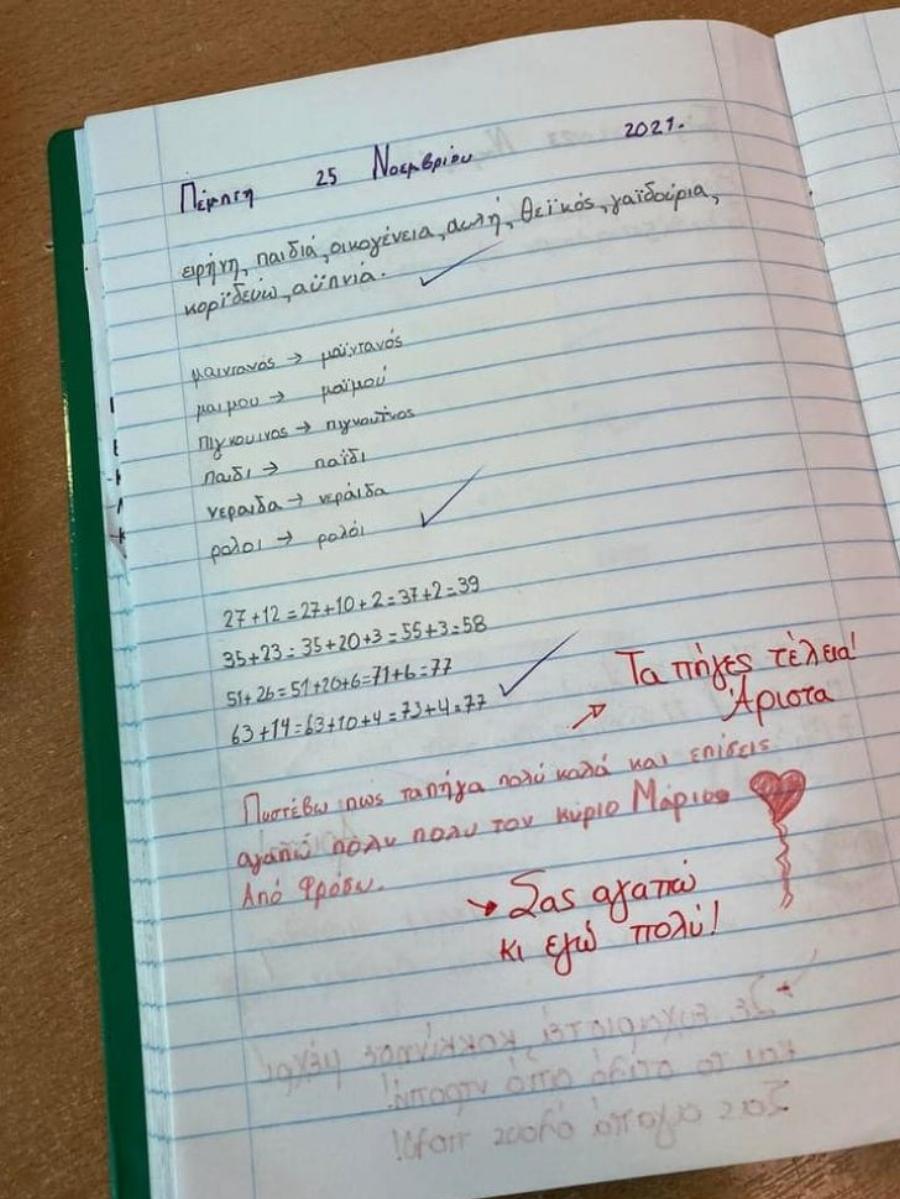 Πέμπτη 25 Νοεμβρίου 2021.
ειρήνη, παιδιά, οικογένεια, αυλή, θεϊκός, γαϊδούρια,
κοροϊδεύω, αϋπνία.
μαιντανός → μαϊντανός
μαιμου → μαϊμού
πιγκουινος → πιγκουΐνος
παιδι → παϊδι
νεραιδα → νεράιδα
ρολοι → ρολόι
27+12=27+10+2=37+2=39
35+23=35+20+3=55+3=58
51+26=51+20+6=71+6=77
63+14=63+10+4=73+4=77
Τα πήγες τέλεια!
Άριστα
Πιστέβω πως ταπήγα πολύ καλά και επίσεις
αγαπώ πολυ πολυ τον κύριο Μάριο
Από Φρόσω.
Σας αγαπώ
κι εγώ πολύ!
Σε ευχαριστεί κοκκίνησε μέχρι
και το στυλό από ντροπή!
Σας αγαπώ όλους πολύ!